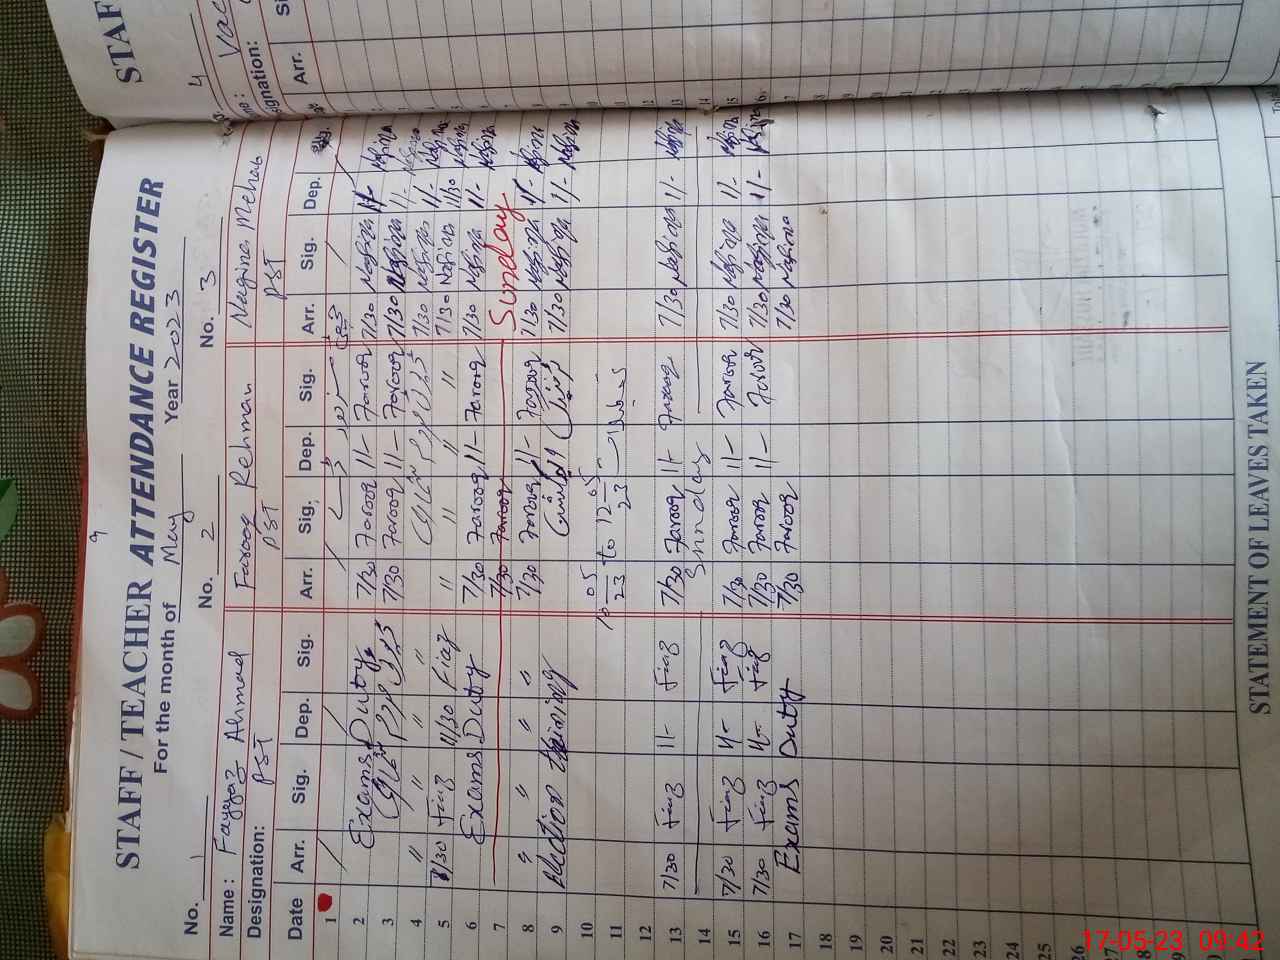 9
STAFF / TEACHER ATTENDANCE REGISTER
For the month of May Year 2023
No. 1 No. 2 No. 3
Name : Fayyaz Ahmad Farooq Rehman Nagina Mehab
Designation: PST PST PST
Date Arr. Sig. Dep. Sig. Arr. Sig. Dep. Sig. Arr. Sig. Dep.
1
2 Exams Duty 7/30 Farooq 11/- Farooq 7/30 Nagina 11/- Nagina
3 7/30 Farooq 11/- Farooq 7/30 Nagina 11/- Nagina
4 " " " " 7/30 Nagina 11/- Nagina
5 7/30 Fiaz 11/30 Fiaz " " " " 7/30 Nagina 11/30 Nagina
6 Exams Duty 7/30 Farooq 11/- Farooq 7/30 Nagina 11/- Nagina
7 7/30 Farooq Sunday
8 " " " " 7/30 Farooq 11/- Farooq 7/30 Nagina 11/- Nagina
9 election training 7/30 Nagina 11/- Nagina
10 10 05/23 to 12 05/23
11
12
13 7/30 Fiaz 11- Fiaz 7/30 Farooq 11- Farooq 7/30 Nagina 11/- Nagina
14 Sunday
15 7/30 Fiaz 11- Fiaz 7/30 Farooq 11- Farooq 7/30 Nagina 11/- Nagina
16 7/30 Fiaz 11- Fiaz 7/30 Farooq 11- Farooq 7/30 Nagina 11/- Nagina
17 Exams Duty 7/30 Farooq 7/30 Nagina
18
19
20
21
22
23
24
25
26
27
28
29
30
STATEMENT OF LEAVES TAKEN
STAF
4
Arr.
17-05-23 09:42